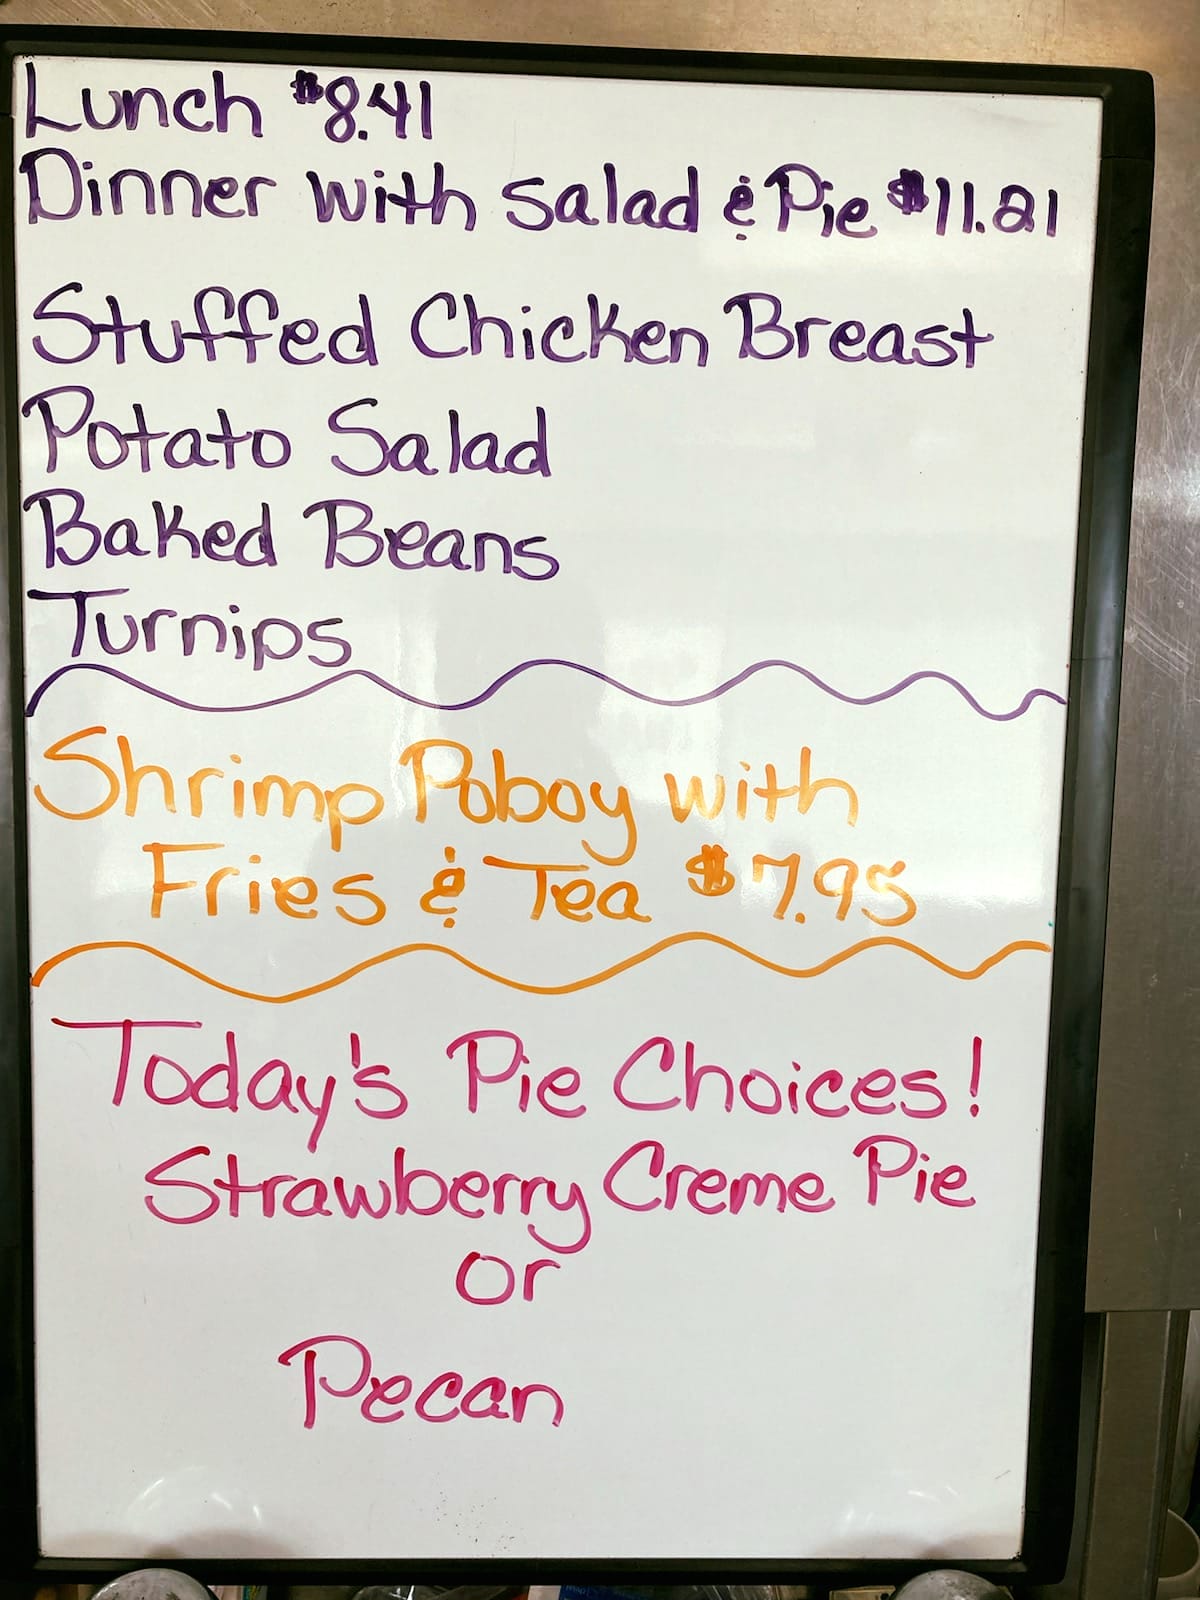 Lunch $8.41
Dinner with salad & Pie $11.21
Stuffed Chicken Breast
Potato Salad
Baked Beans
Turnips
Shrimp Poboy with
Fries & Tea $7.95
Today's Pie Choices!
Strawberry Creme Pie
or
Pecan